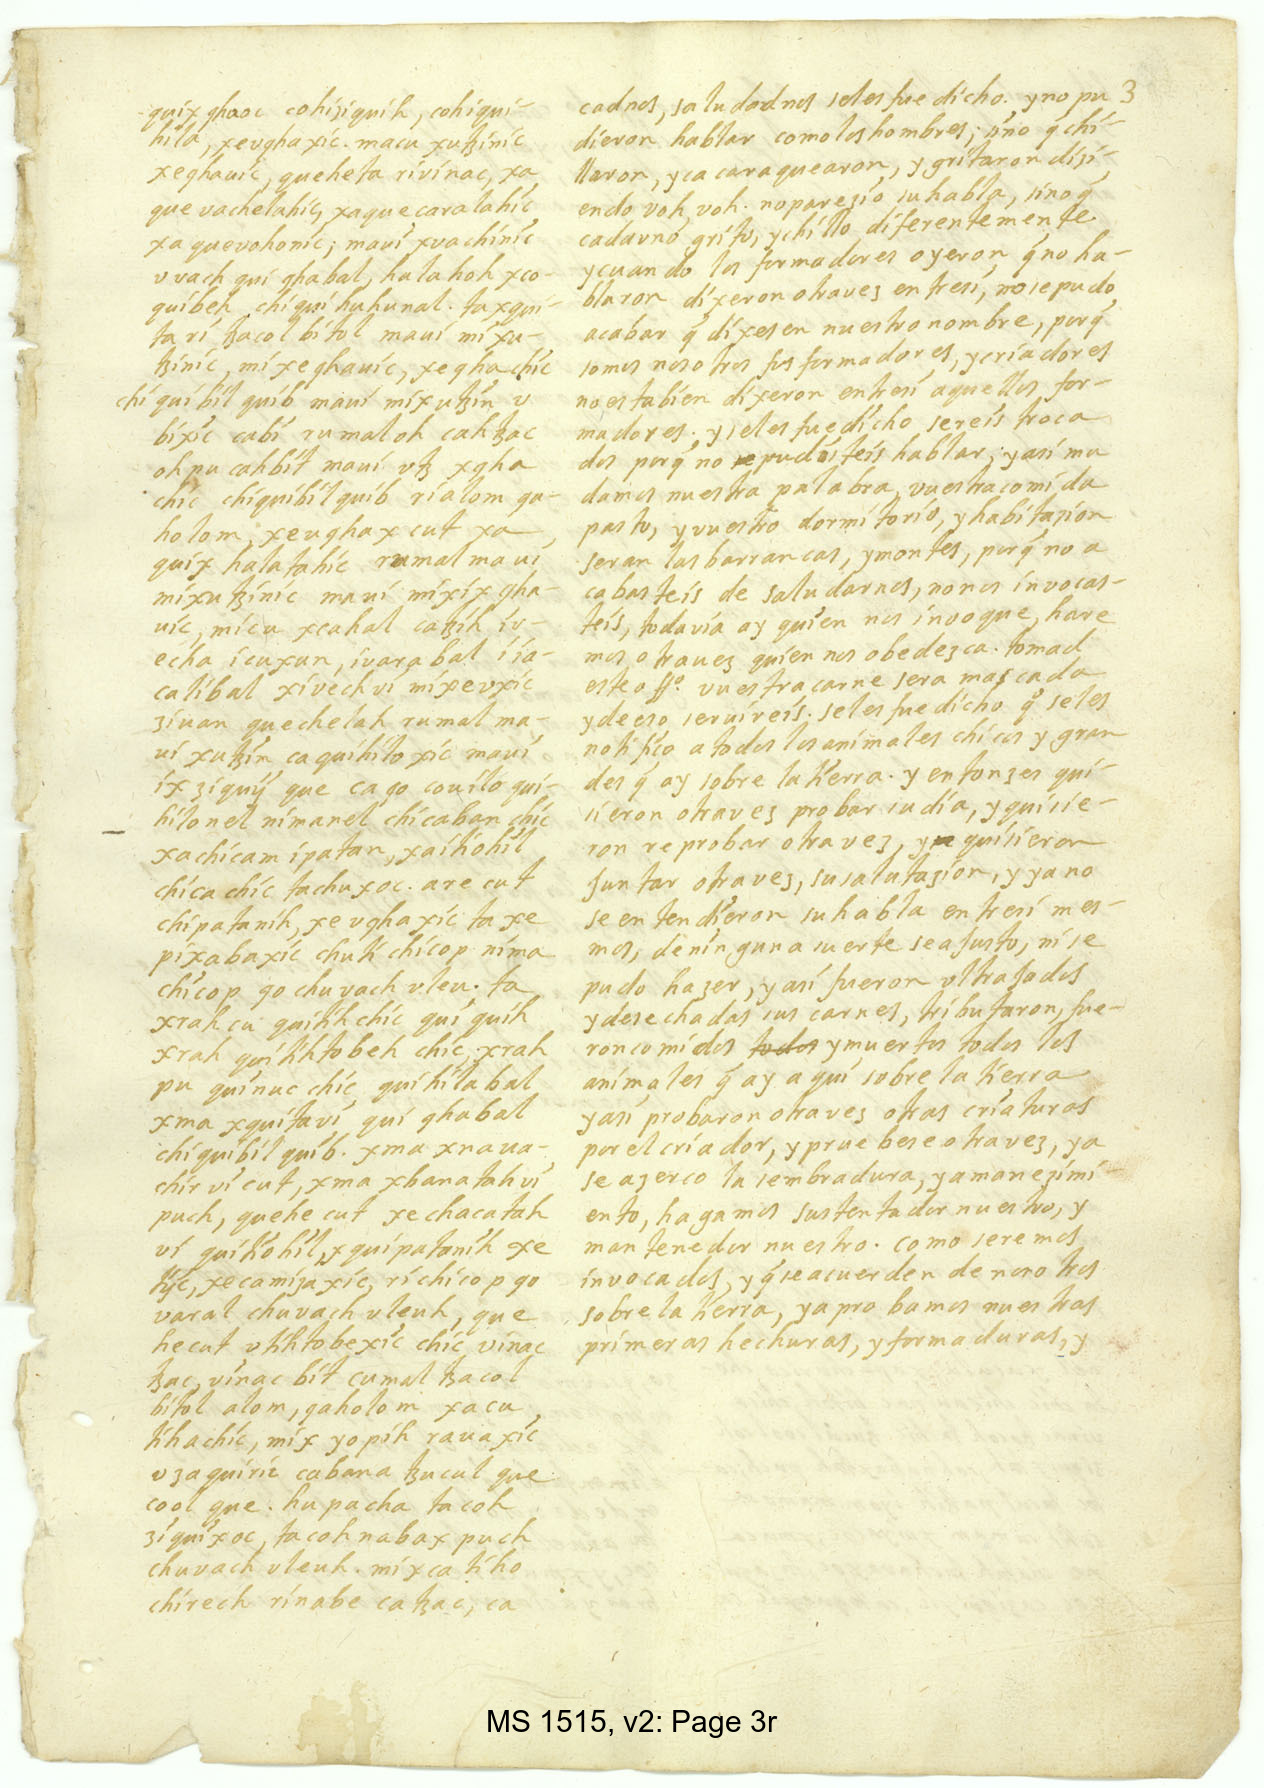 quix ghaoc cohiziquih, cohiqui-
hila, xeughaxic. macu xutzinic
xeghauic, queheta rivinac, xa
que vachelahic, xaquecaralahic
xa quevohonic; maui xvachinic
v vach qui ghabal, halahoh xco-
quibeh chiquihuhunal. taxqui-
ta ri tzacol bitol maui mixu-
tzinic, mixeghauic, xeghachic
chiquibil quib maui mixutzin v
bixic cabi rumal oh cahtzac
ohpu cahbit maui vtz xgha
chic chiquibil quib rialom ga-
holom, xeughax cut xa
quix halatahic rumal maui
mixutzinic maui mixixgha-
uic, micu xcahal catzih iv-
echa icuxun, ivarabal iia-
calibal xivech vi mixevxic
ziuan quechelah rumal ma-
ui xutzin caquihiloxic maui
ix ziquij que cago couilo qui-
hilonel nimanel chicaban chic
xachicam ipatan, xaitiohil
chicachic tachuxoc. are cut
chipatanih, xe vghaxic taxe
pixabaxic chuti chicop nima
chicop go chuvach vleu. ta
xrah cu quitihchic qui quih
xrah quitihtobeh chic, xrah
pu quinuc chic quihilabal
xma xquitavi qui ghabal
chiquibil quib. xma xnaua-
chir vi cut, xma xbanatah vi
puch, quehe cut xechacatah
vi quitiohil, xquipatanih xe
tijc, xecamizaxic, richicop go
varal chuvach vleuh, que
he cut vtihtobexic chic vinac
tzac, vinac bit cumal tzacol
bitol alom, gaholom xacu
tihachic, mix yopih rauaxic
vzaquiric cabana tzucul que
cool que. hupacha tacoh
ziquixoc, tacohnabax puch
chuvach vleuh. mixcatiho
chirech rinabe catzac, ca
3
cadnos, saludadnos seles fue dicho. y no pu
dieron hablar como los hombres; sino q̃ chi-
llaron, y cacaraquearon, y gritaron dizi-
endo voh, voh. no parezio su habla, sino q̃
cadavno grito, y chillo diferentemente
y cuando los formadores oyeron q̃ no ha-
blaron dixeron otravez entresi, nose pudo
acabar q̃ dixesen nuestro nombre, porq̃
somos nosotros sus formadores, y criadores
no esta bien dixeron entresi aquellos for-
madores. y seles fue dicho sereis troca
dos porq̃ no pudisteis hablar; y asi mu
damos nuestra palabra, vuestra comida
pasto, y vuestro dormitorio, y habitazion
seran las barrancas, y montes, porq̃ no a
cabasteis de saludarnos, nonos invocas-
teis, todavia ay quien nos invoque, hare
mos otravez quien nos obedezca. tomad
este offº. vuestra carne sera mascada
y de eso servireis. seles fue dicho q̃ seles
notifico a todos los animales chicos y gran
des q̃ ay sobre la tierra. y entonzes qui-
sieron otravez probar su dia, y quisie-
ron reprobar otra vez, y quisieron
juntar otravez, su salutazion, y ya no
se entendieron su habla entresi mes-
mos, de ninguna suerte se ajusto, ni se
pudo hazer, y asi fueron vltrajados
y desechadas sus carnes, tributaron, fue-
ron comidos todos y muertos todos los
animales q̃ ay aqui sobre la tierra
y asi probaron otravez otras criaturas
por el criador, y pruebese otra vez, ya
se azerco la sembradura, y amanezimi-
ento, hagamos sustentador nuestro, y
mantenedor nuestro. como seremos
invocados, y q̃ se acuerden de nosotros
sobre la tierra, ya probamos nuestras
primeras hechuras, y formaduras, y
MS 1515, v2: Page 3r